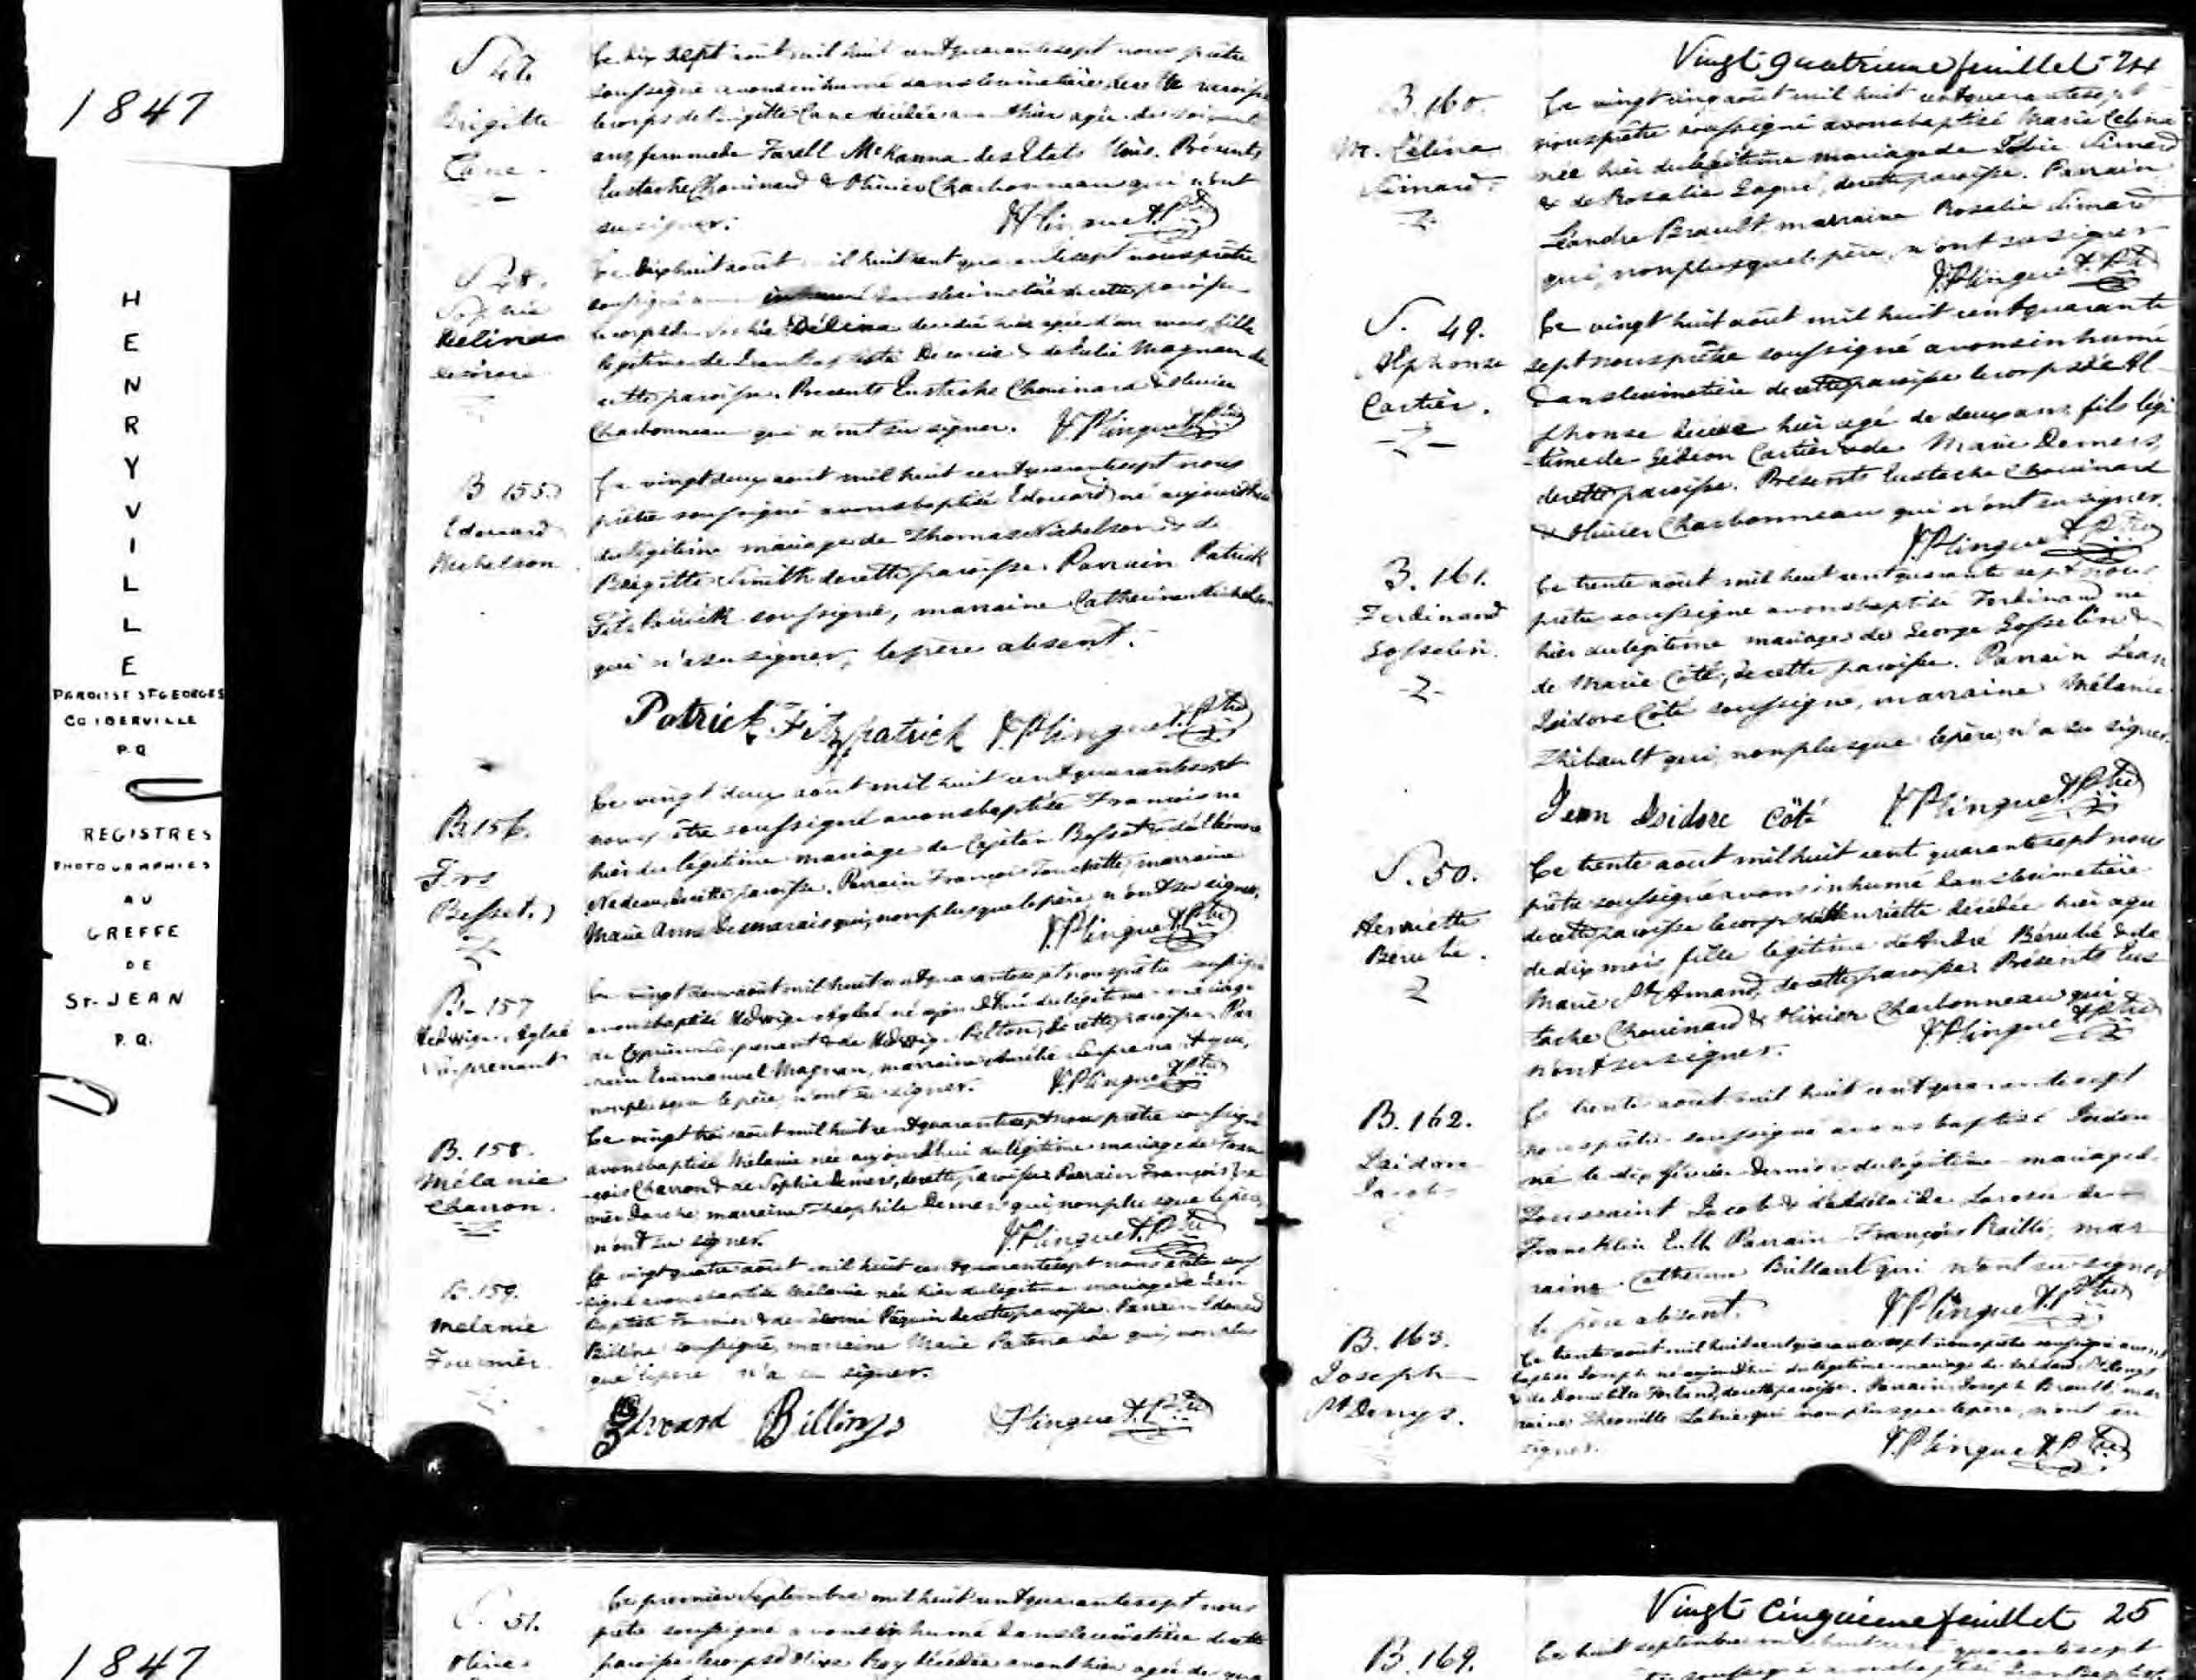 1847
HENRYVILLE
PAROISSE ST GEORGES
CO IBERVILLE
P.Q
REGISTRES
PHOTOGRAPHIES
AU
GREFFE
DE
St-JEAN
P.Q.
S 47.
Brigitte
Cane.
Ce dix sept août mil huit cent quarante sept nous prêtre
soussigné avons inhumé dans le cimetière de cette paroisse
le corps de Brigitte Cane décédée avant hier agée de soixante
ans femme de Farell McKanna des Etats Unis. Présents
Eustache Chouinard & Olivier Charbonneau qui n'ont
su signer.
S 48.
Sophie
Délina
Ce dix huit août mil huit cent quarante sept nous prêtre
soussigné avons inhumé dans le cimetière de cette paroisse
le corps de Sophie Délina décédée hier agée d'un mois, fille
légitime de Jean Baptiste & de Julie Magnan de
cette paroisse. Présents Eustache Chouinard & Olivier
Charbonneau qui n'ont su signer. J.P. Linguet, Ptre
B 155.
Edouard
Nichelson
Ce vingt deux août mil huit cent quarante sept nous
prêtre soussigné avons baptisé Edouard né aujourd'hui
du légitime mariage de Thomas Nichelson & de
Brigitte Smith de cette paroisse. Parrain Patrick
Fitzpatrick soussigné, marraine Catherine Nichelson
qui n'a su signer, le père absent.
Patrick Fitzpatrick J.P. Linguet, Ptre
B. 156.
Frs
Besset.
Ce vingt deux août mil huit cent quarante sept
nous prêtre soussigné avons baptisé François né
hier du légitime mariage de Cajétan Besset & d'Eléonore
Nadeau, de cette paroisse. Parrain François Touchette, marraine
Marie Anne Desmarais qui, non plus que le père n'ont su signer.
J.P. Linguet, Ptre
B. 157
Hedwige Aglaé
Surprenant
Ce vingt deux août mil huit cent quarante sept nous prêtre soussigné
avons baptisé Hedwige Aglaé née aujourd'hui du légitime mariage
de Surprenant & de Hedwige Pelton, de cette paroisse. Par
rain Emmanuel Magnan, marraine Aurélie Surprenant qui,
non plus que le père, n'ont su signer. J.P. Linguet, Ptre
B. 158.
Mélanie
Charron.
Ce vingt trois août mil huit cent quarante sept nous prêtre soussigné
avons baptisé Mélanie née aujourd'hui du légitime mariage de Fran
çois Charron & de Sophie Demers, de cette paroisse. Parrain François
marraine Théophile Demers qui, non plus que le père,
n'ont su signer. J.P. Linguet, Ptre
B. 159.
Mélanie
Fournier.
Ce vingt quatre août mil huit cent quarante sept nous prêtre sous
signé avons baptisé Mélanie née hier du légitime mariage de Jean
Baptiste Fournier & de Paquin de cette paroisse. Parrain Edouard
Billins soussigné, marraine Marie Patenaude qui, non plus
que le père n'a su signer.
Edward Billings J.P. Linguet, Ptre
Vingt quatrième feuillet 24
B. 160.
M. Célina
Simard.
Ce vingt cinq août mil huit cent quarante sept
nous prêtre soussigné avons baptisé Marie Célina
née hier du légitime mariage de Tobie Simard
& de Rosalie Gagné, de cette paroisse. Parrain
Léandre Brault marraine Rosalie Simard
qui, non plus que le père, n'ont su signer
J.P. Linguet, Ptre
S. 49.
Alphonse
Cartier.
Ce vingt huit août mil huit cent quarante
sept nous prêtre soussigné avons inhumé
dans le cimetière de cette paroisse le corps de Al-
phonse décédé hier agé de deux ans, fils légi
time de Gédéon Cartier & de Marie Demers,
de cette paroisse. Présents Eustache Chouinard
& Olivier Charbonneau qui n'ont su signer.
J.P. Linguet, Ptre
B. 161.
Ferdinand
Gosselin.
Ce trente août mil huit cent quarante sept nous
prêtre soussigné avons baptisé Ferdinand né
hier du légitime mariage de George Gosselin &
de Marie Côté, de cette paroisse. Parrain Jean
Isidore Côté soussigné, marraine Mélanie
Thibault qui, non plus que le père, n'a su signer.
Jean Isidore Côté J.P. Linguet, Ptre
S. 50.
Henriette
Bérubé.
Ce trente août mil huit cent quarante sept nous
prêtre soussigné avons inhumé dans le cimetière
de cette paroisse le corps d'Henriette décédée hier agée
de dix mois fille légitime d'André Bérubé & de
Marie St Amand, de cette paroisse. Présents Eus
tache Chouinard & Olivier Charbonneau qui
n'ont su signer. J.P. Linguet, Ptre
B. 162.
Isidore
Jacob
Ce trente août mil huit cent quarante sept
nous prêtre soussigné avons baptisé Isidore
né le dix février dernier du légitime mariage de
Toussaint Jacob & d'Adélaïde Larose de
Francklin Parrain François mar
raine Catherine Brillant qui n'ont su signer
le père absent. J.P. Linguet, Ptre
B. 163.
Joseph
St Denys.
Ce trente août mil huit cent quarante sept nous prêtre soussigné avons
baptisé Joseph né aujourd'hui du légitime mariage de Médard St Denys
& de de cette paroisse. Parrain Joseph Brault, mar
raine qui non plus que le père, n'ont su
signer. J.P. Linguet, Ptre
1847
S. 51.
Olive
Ce premier Septembre mil huit cent quarante sept nous
prêtre soussigné avons inhumé dans le cimetière de cette
paroisse le corps d'Olive Roy décédée avant hier agée de qua
Vingt Cinquième feuillet 25
B. 169.
Ce huit septembre mil huit cent quarante sept